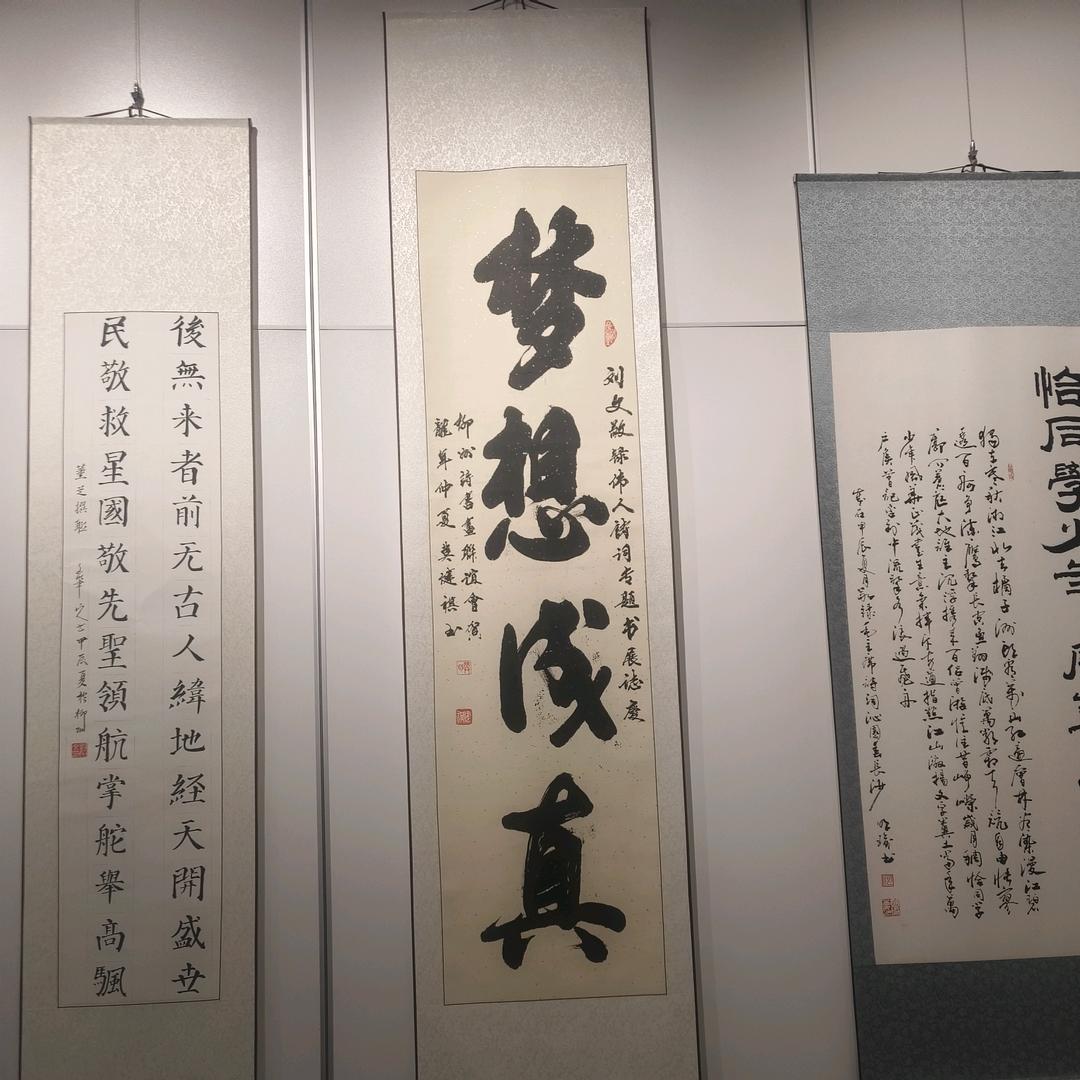 後無来者前无古人緯地経天開盛世
民敬救星國敬先聖領航掌舵舉高颿
董芝撰聯
甲辰夏於柳州
刘文敬録伟人诗词专题书展誌慶
梦想成真
柳州诗書畫聯誼會賀
龍年仲夏
恰同學少年
獨立寒秋湘江北去橘子洲頭看萬山红遍層林尽染漫江碧
透百舸争流鷹擊長空魚翔浅底萬類霜天競自由怅寥
廓问蒼茫大地誰主沉浮携来百侣曾遊憶往昔崢嶸歲月稠恰同学
少年風華正茂書生意氣揮斥方遒指點江山激揚文字糞土當年萬
户侯曾記否到中流擊水浪遏飛舟
歲在甲辰夏月敬録毛主席詩詞沁園春長沙